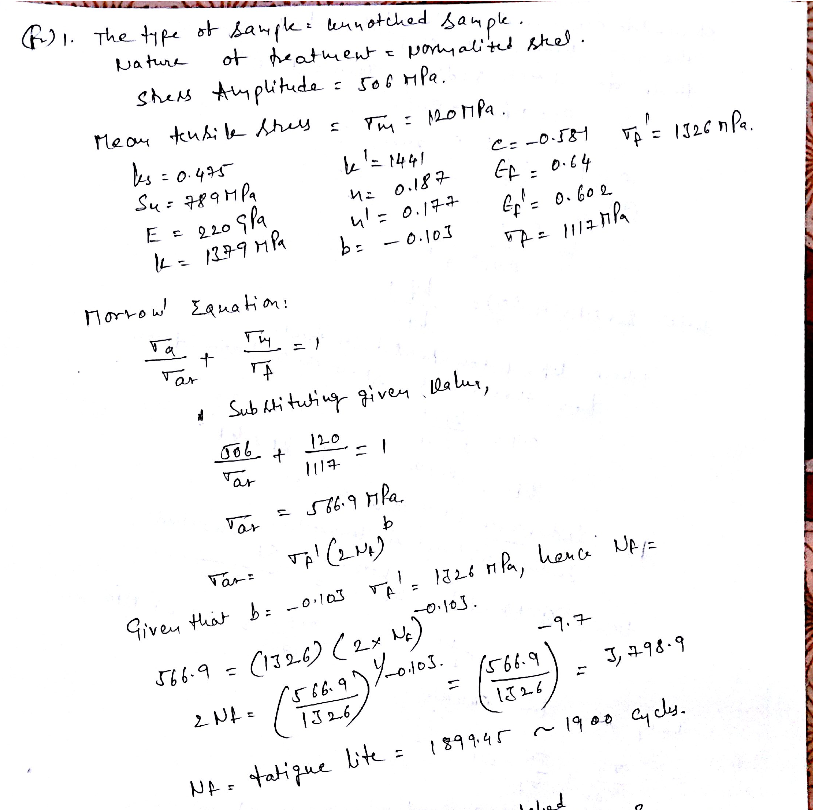 (A) 1. The type of sample = unnotched sample.
Nature of treatment = Normalized steel.
Stress Amplitude = 506 MPa.
Mean tensile stress = σm = 120 MPa.
ks = 0.475 k' = 1441 c = -0.581 σf' = 1326 MPa.
Su = 789 MPa n = 0.187 εf = 0.64
E = 220 GPa n' = 0.177 εf' = 0.602
k = 1379 MPa b = -0.103 σf = 1117 MPa
Morrow Equation:
σa/σar + σm/σf = 1
Substituting given value,
506/σar + 120/1117 = 1
σar = 566.9 MPa.
σar = σf' (2Nf)^b
Given that b = -0.103 σf' = 1326 MPa, hence Nf =
566.9 = (1326) (2 x Nf)^-0.103.
2Nf = (566.9/1326)^1/-0.103. = (566.9/1326)^-9.7 = 3,798.9
Nf = fatigue life = 1899.45 ~ 1900 cycles.